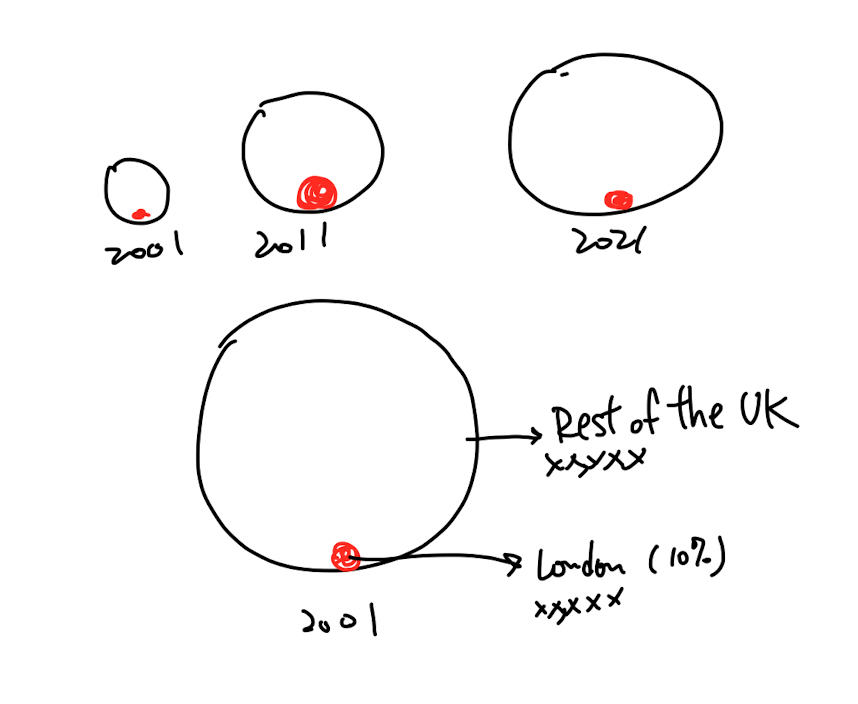 2001
2011
2021
Rest of the UK
xx,xxx
London (10%)
xx,xxx
2001